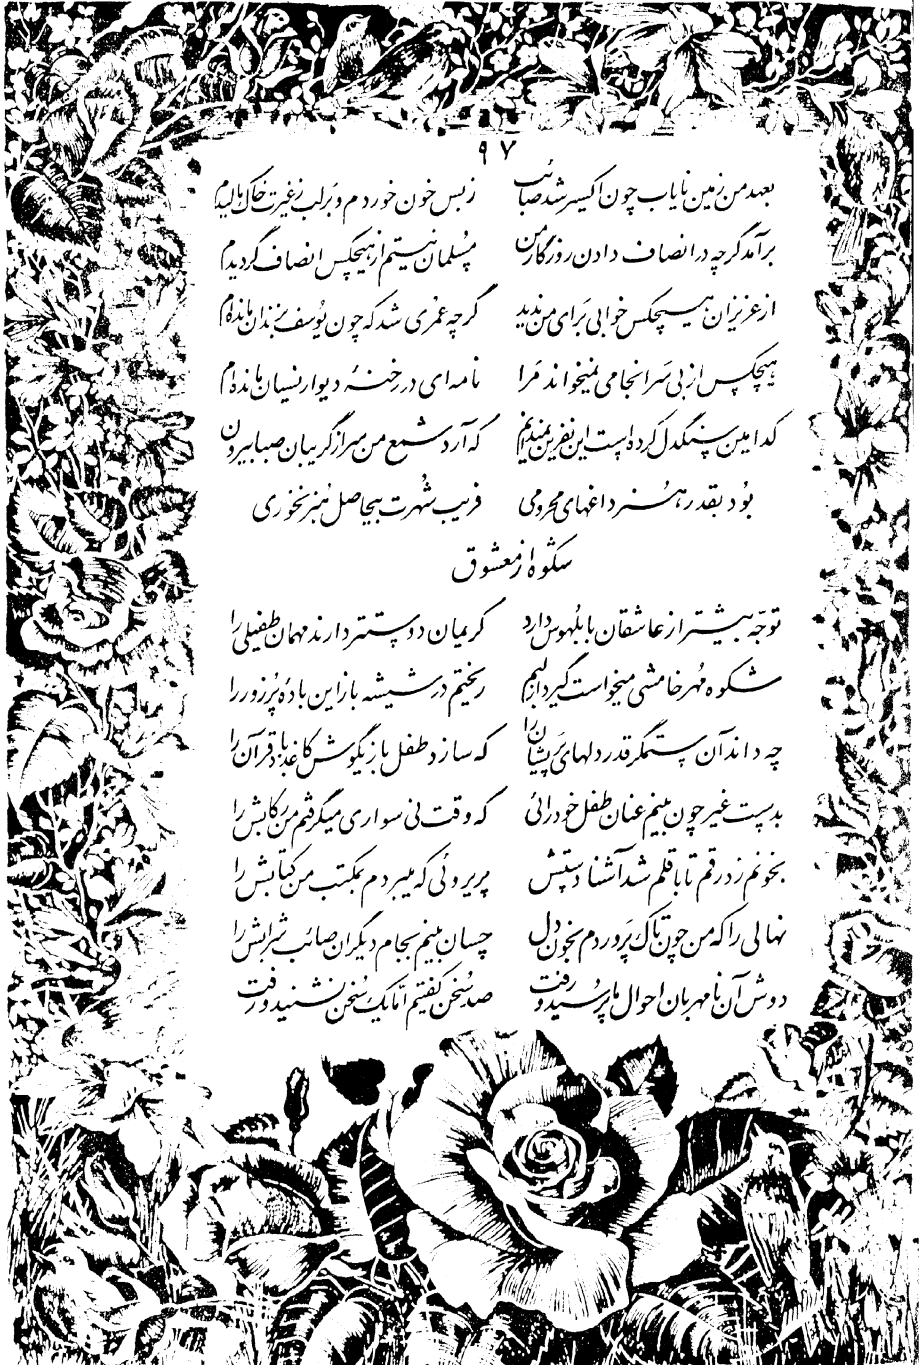 ۹۷
بعهد من زمین نایاب چون اکسیر شد صائب زبس خون خوردم و بر لب زغیرت خاک مالیدم
برآمد گرچه در انصاف دادن روزگار من مسلمان نیستم از هیچکس انصاف گر دیدم
از عزیزان هیچکس خوابی برای من ندید گرچه عمری شد که چون یوسف بزندان مانده‌ام
هیچکس از بی سرانجامی نمیخواند مرا نامه‌ای در رخنهٔ دیوار نسیان مانده‌ام
کدامین سنگدل کرده است این نفرین نمیدانم که آرد شمع من سر از گریبان صبا بیرون
بود بقدر هنر داغهای محرومی فریب شهرت بیحاصل هنر نخوری
شکوه از معشوق
توجّه بیشتر از عاشقان با بلهوس دارد کریمان دوستتر دارند مهمان طفیلی را
شکوه مُهر خامشی میخواست گیرد از لبم ریختم در شیشه باز این بادهٔ پُرزور را
چه داند آن ستمگر قدر دلهای پریشان را که سازد طفل بازیگوش کاغذباد قرآن را
بدست غیر چون بینم عنان طفل خودرائی که وقت نی سواری میگرفتم من رکابش را
بخونم زد رقم تا با قلم شد آشنا دستش پریروئی که میبردم بمکتب من کتابش را
نهالی را که من چون تاک پروردم بخون دل چسان بینم بجام دیگران صائب شرابش را
دوش آن نامهربان احوال ما پرسید و رفت صد سُخن گفتیم امّا یک سُخن نشنید و رفت